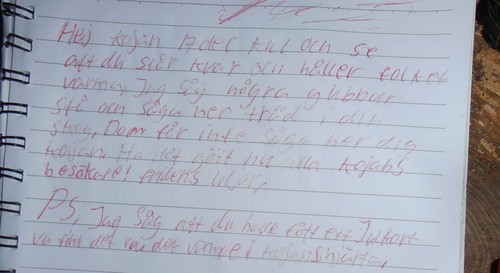 Hej kojan Ä det kul och se
att du står kvar och håller folket
varma, Jag såg några gubbar
stå och såga ner träd i din
skog, Dom får inte såga ner dig
kojan. Ha det gött nu alla kojans
besökare!
PS, Jag såg att du hade fått ett Julkort
va fint det va det värmer i kojanshjärta,